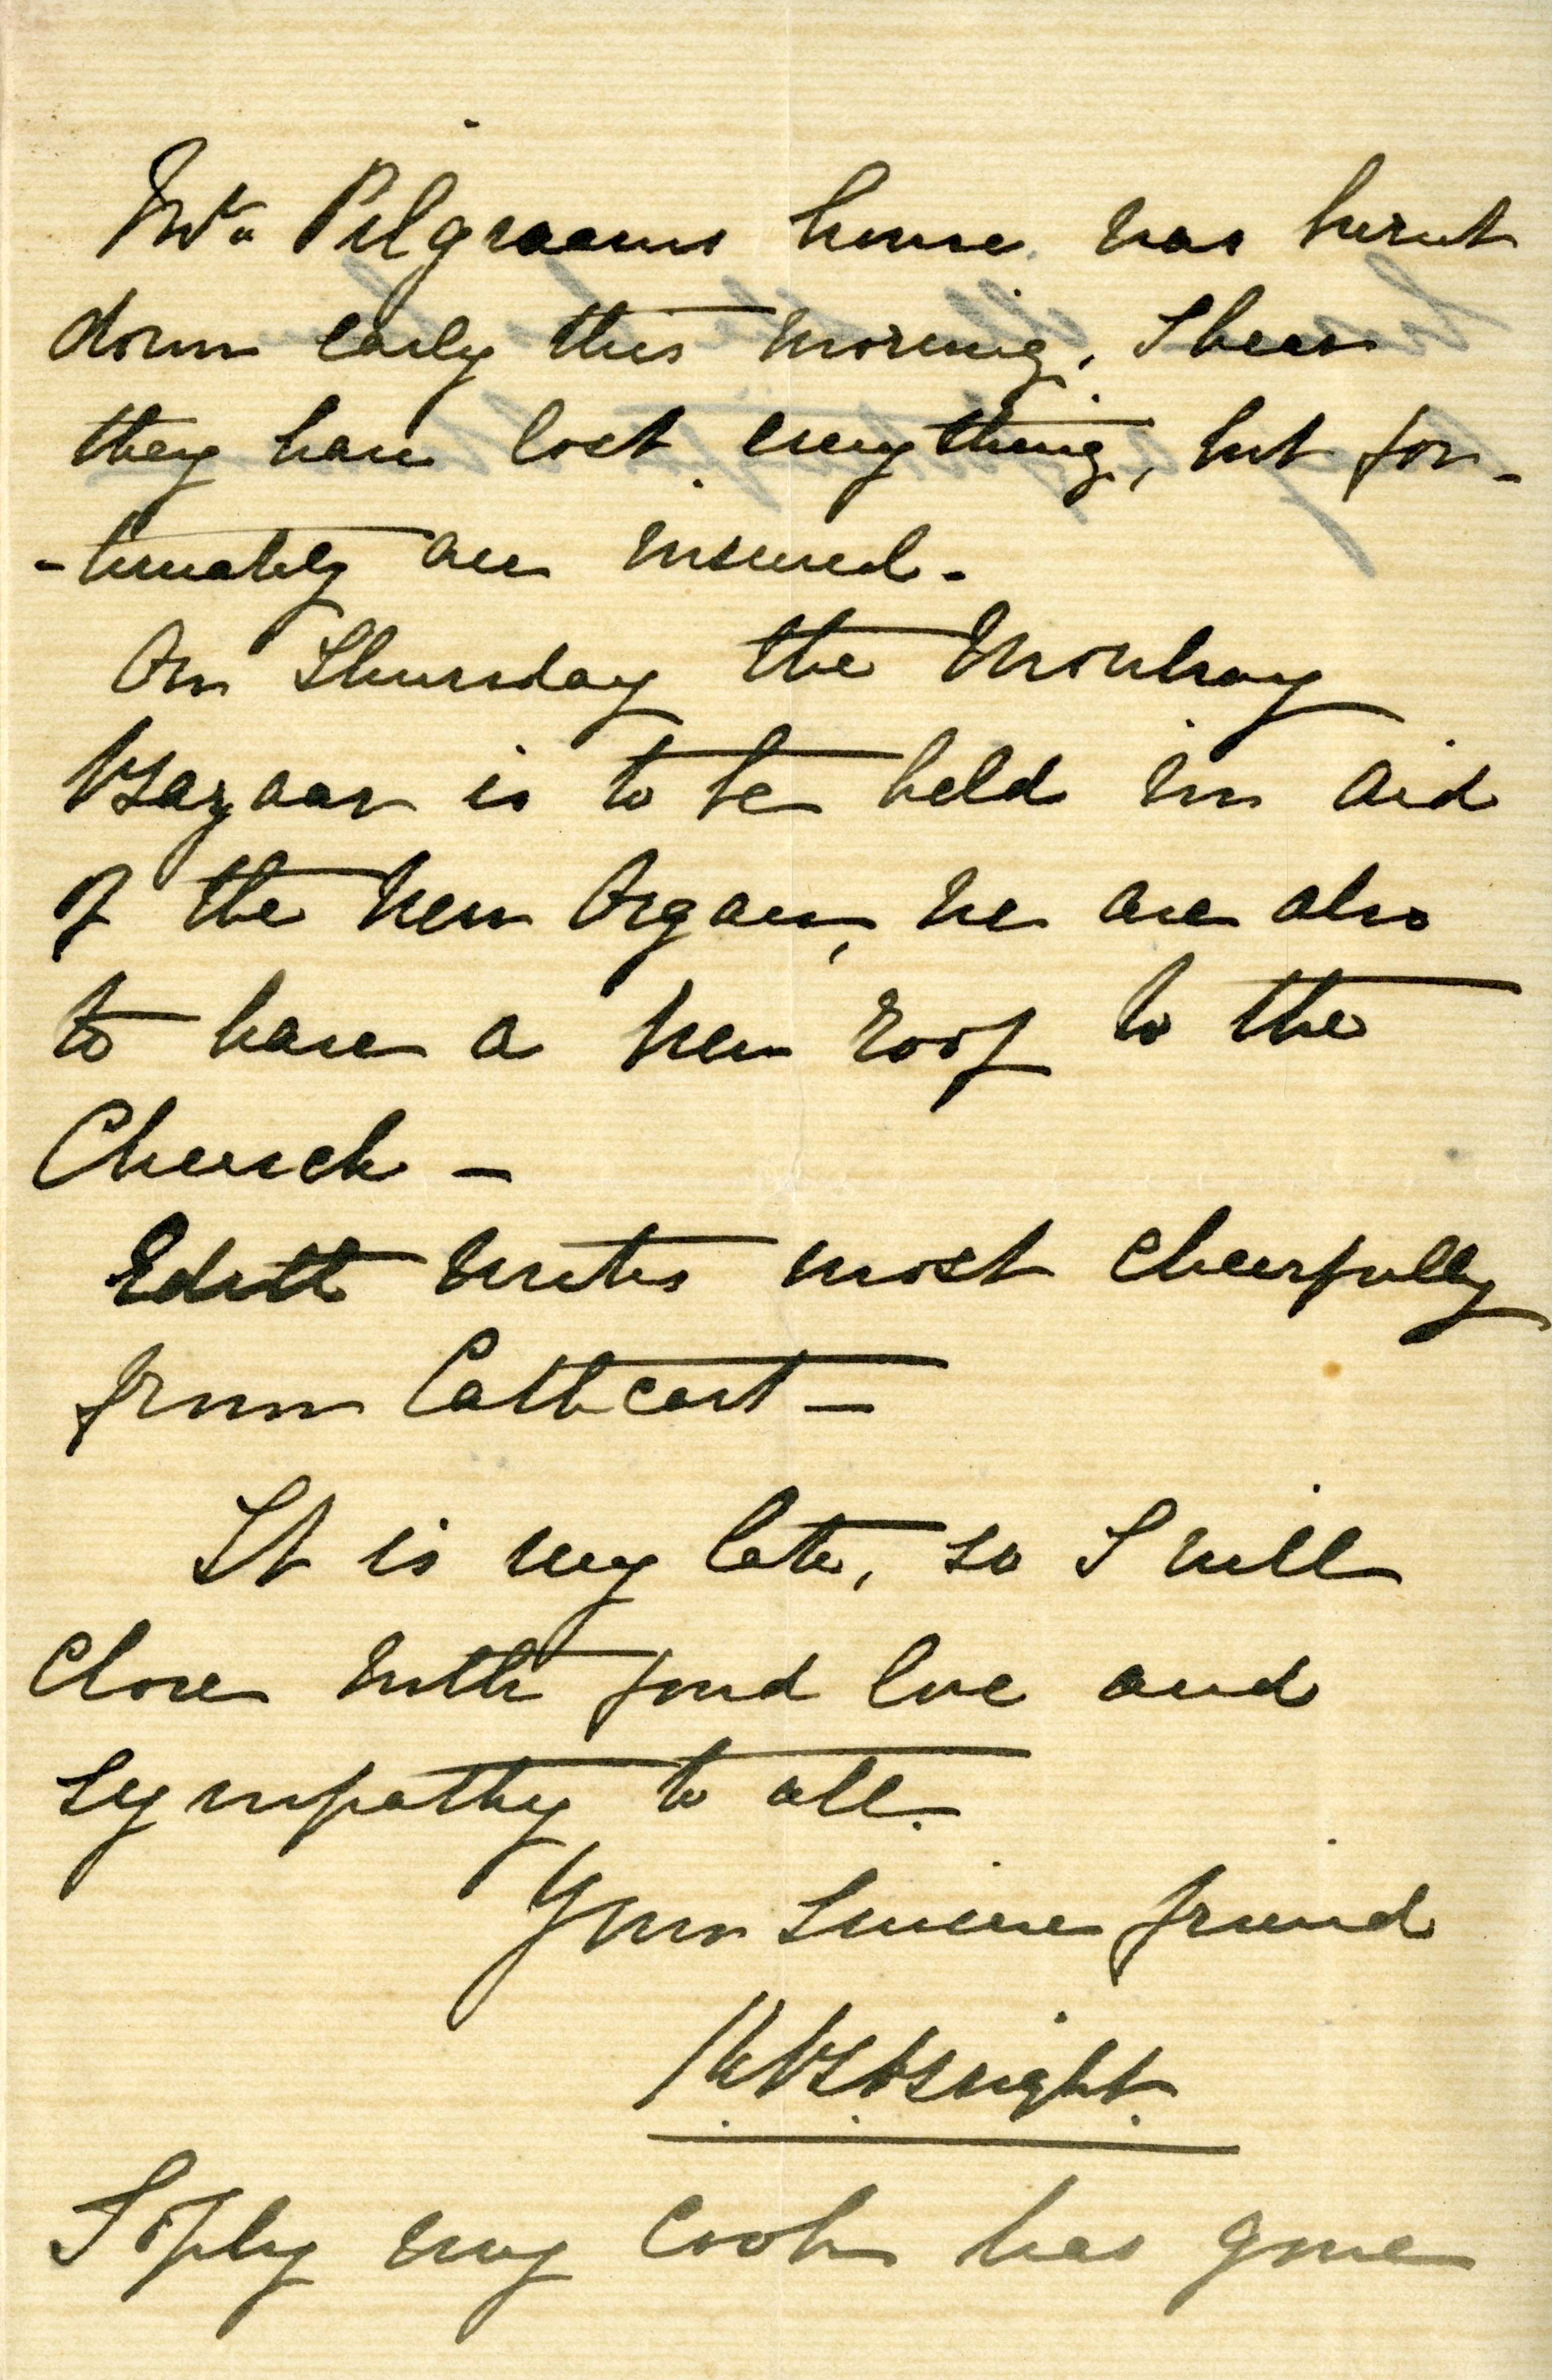 Mr. Pilgraams house was burnt
down early this morning, I hear
they have lost everything, but for-
-tunately are insured.
On Thursday the Mowbray
Bazaar is to be held in aid
of the new Organ, we are also
to have a new roof to the
Church -
Edith writes most cheerfully
from Cathcart -
It is very late, so I will
close with fond love and
sympathy to all.
Your sincere friend
Wright.
Sophy my cook has gone